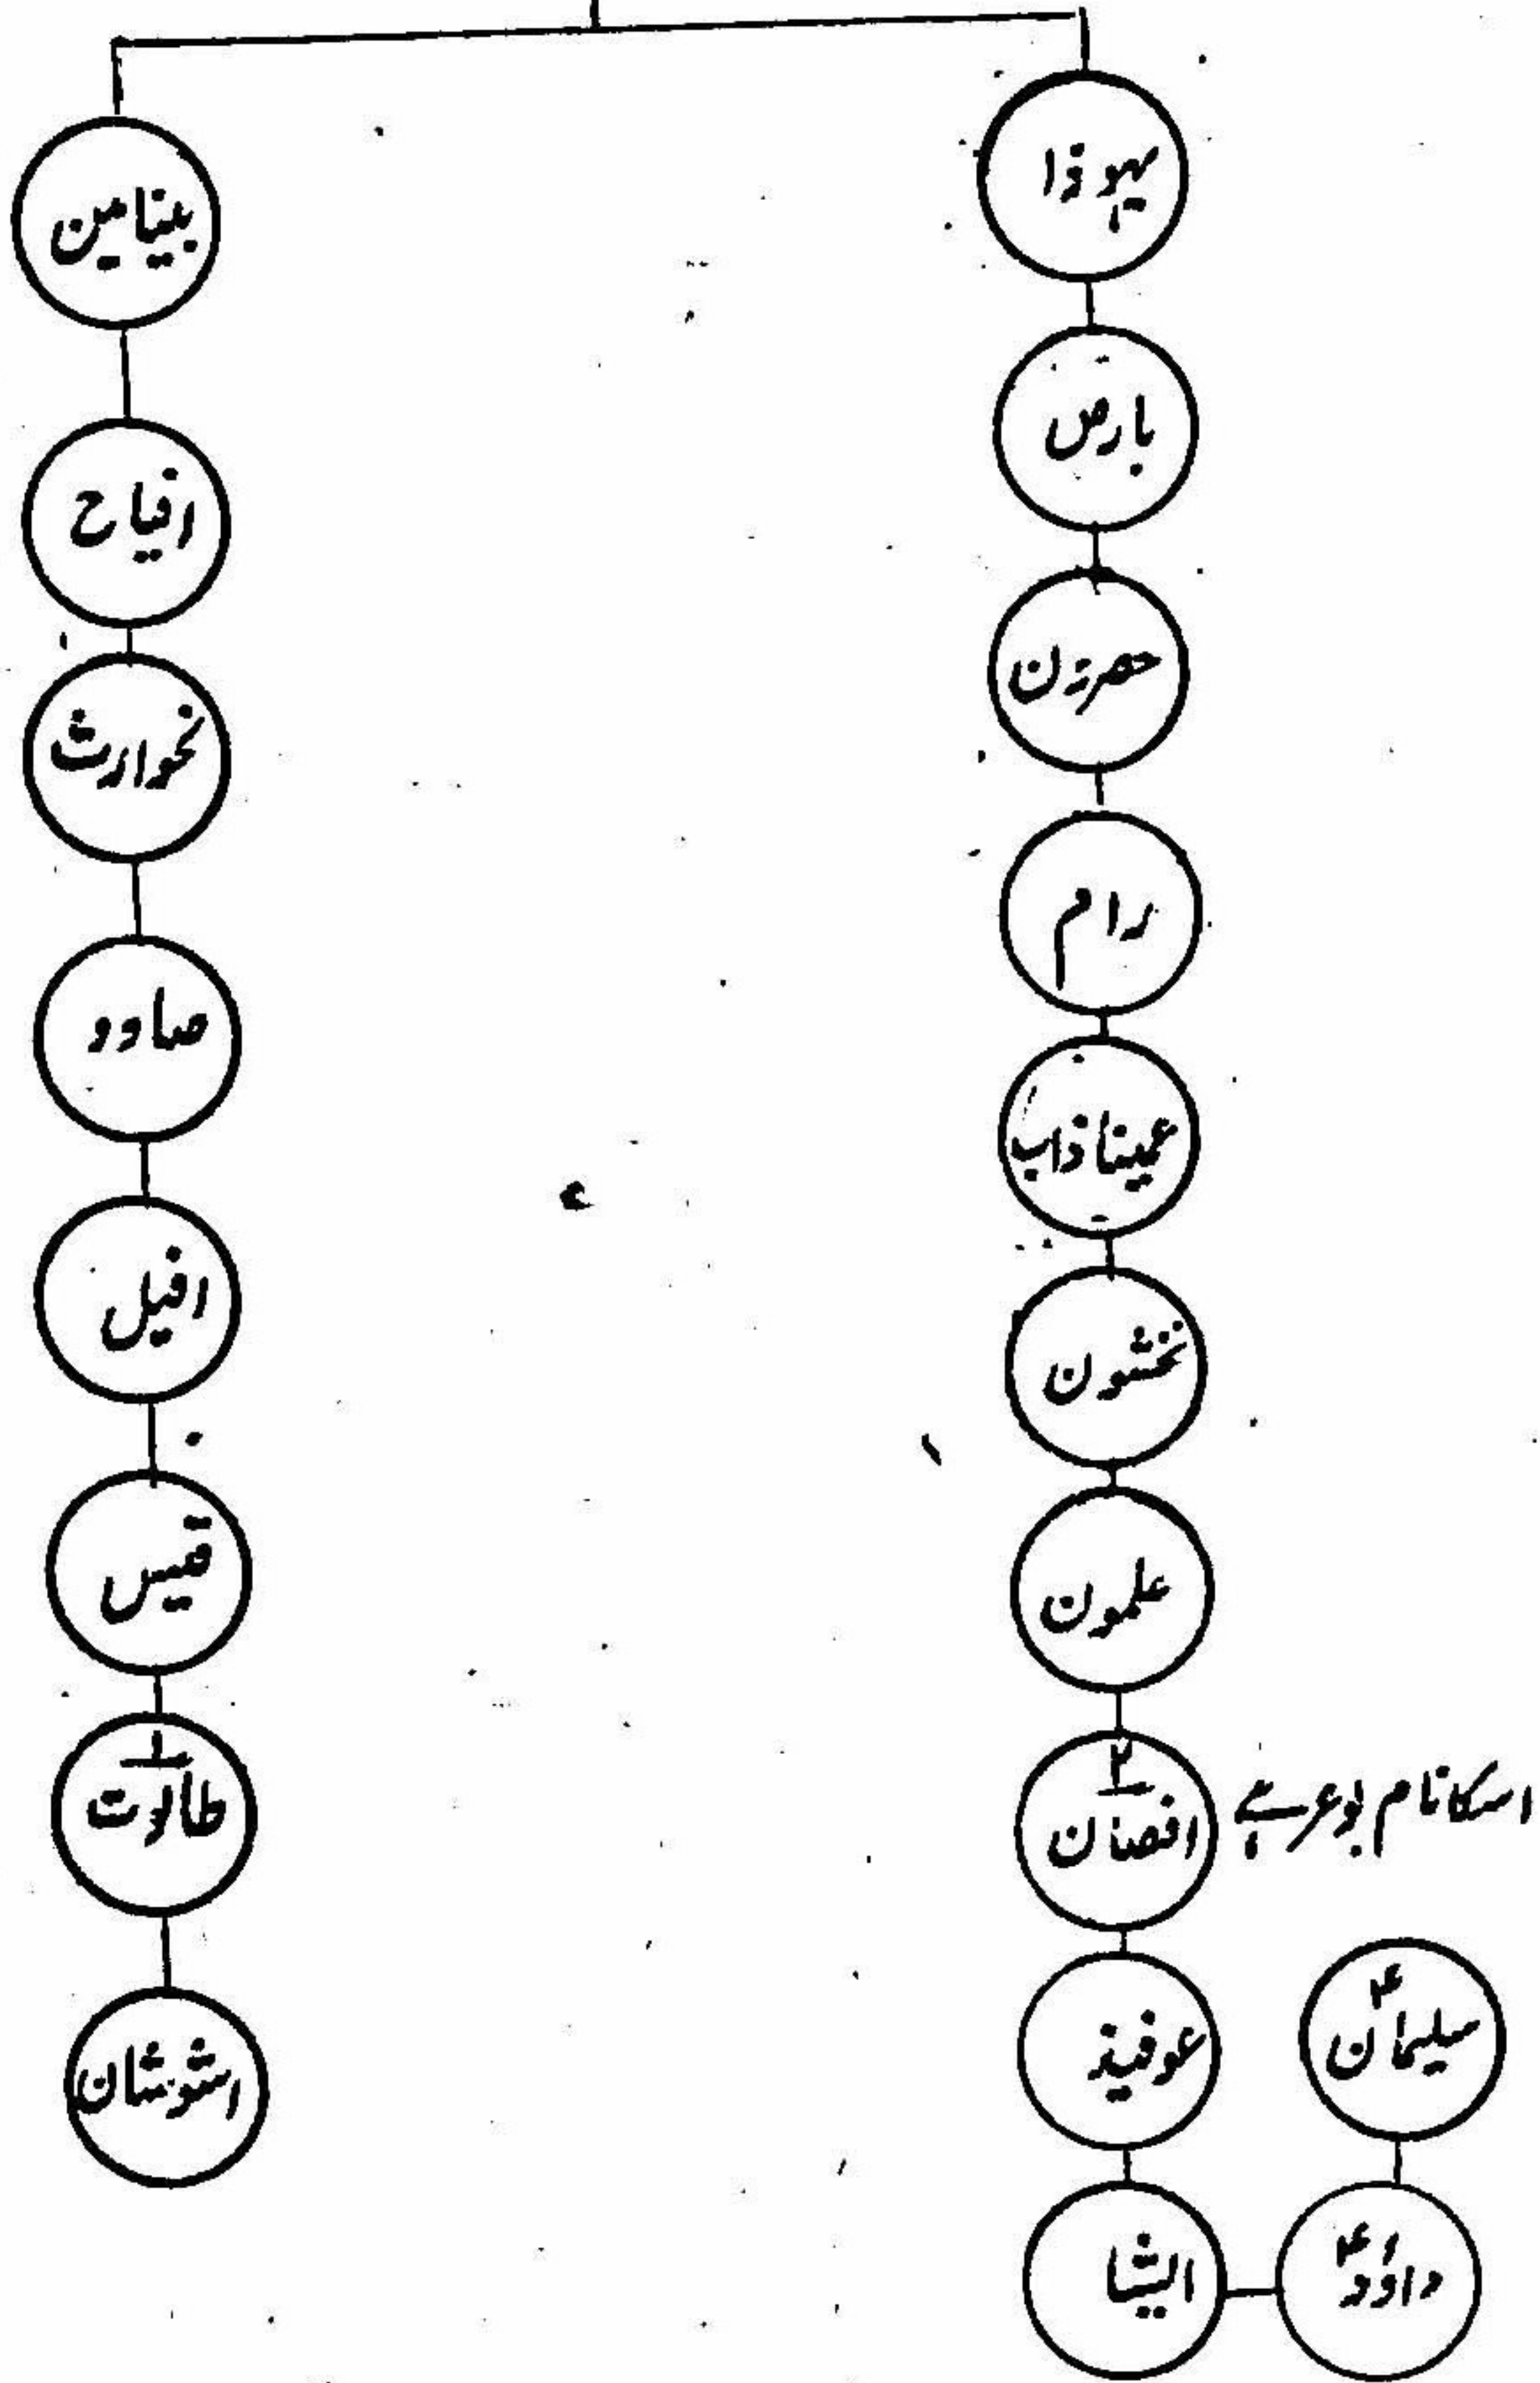 یہوذا
بارص
حصرون
رام
عمیناذاب
نخشون
علمون
۲
افصان
اسکا نام بوعز ہے
عوفیذ
ایشا
داؤد ؑ
سلیمان ؑ
بینامین
افیاح
نحوارث
صاوو
افیل
قیس
۱
طالوت
اشوشان